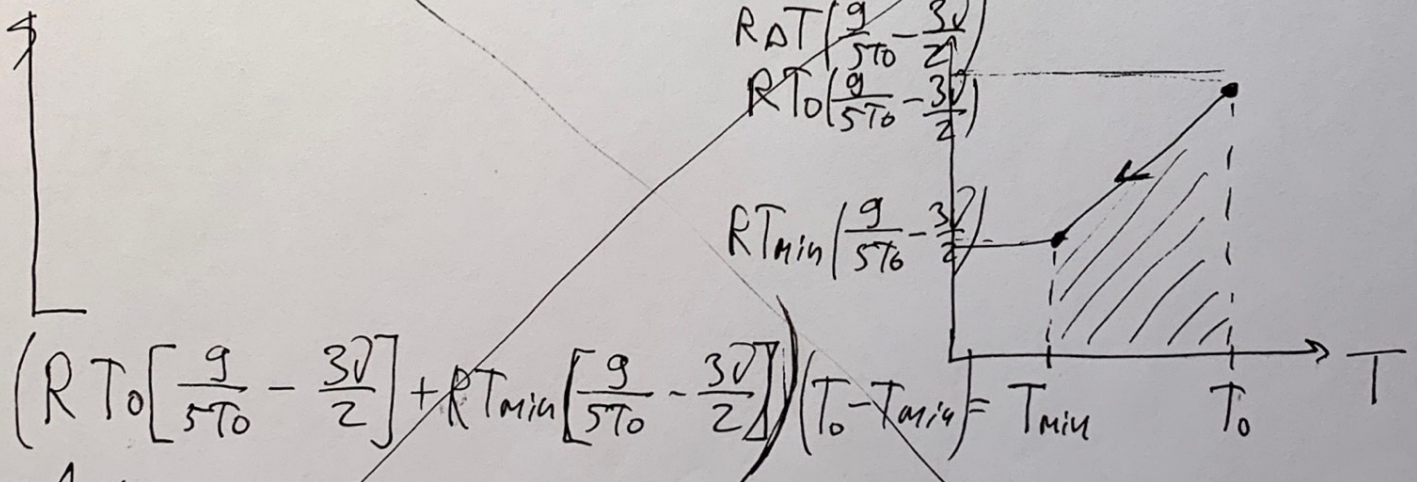 RΔT(9/5T0 - 3ν/2)
RT0(9/5T0 - 3ν/2)
RTmin(9/5T0 - 3ν/2)
(RT0[9/5T0 - 3ν/2] + RTmin[9/5T0 - 3ν/2])(T0 - Tmin) =
Tmin T0 T